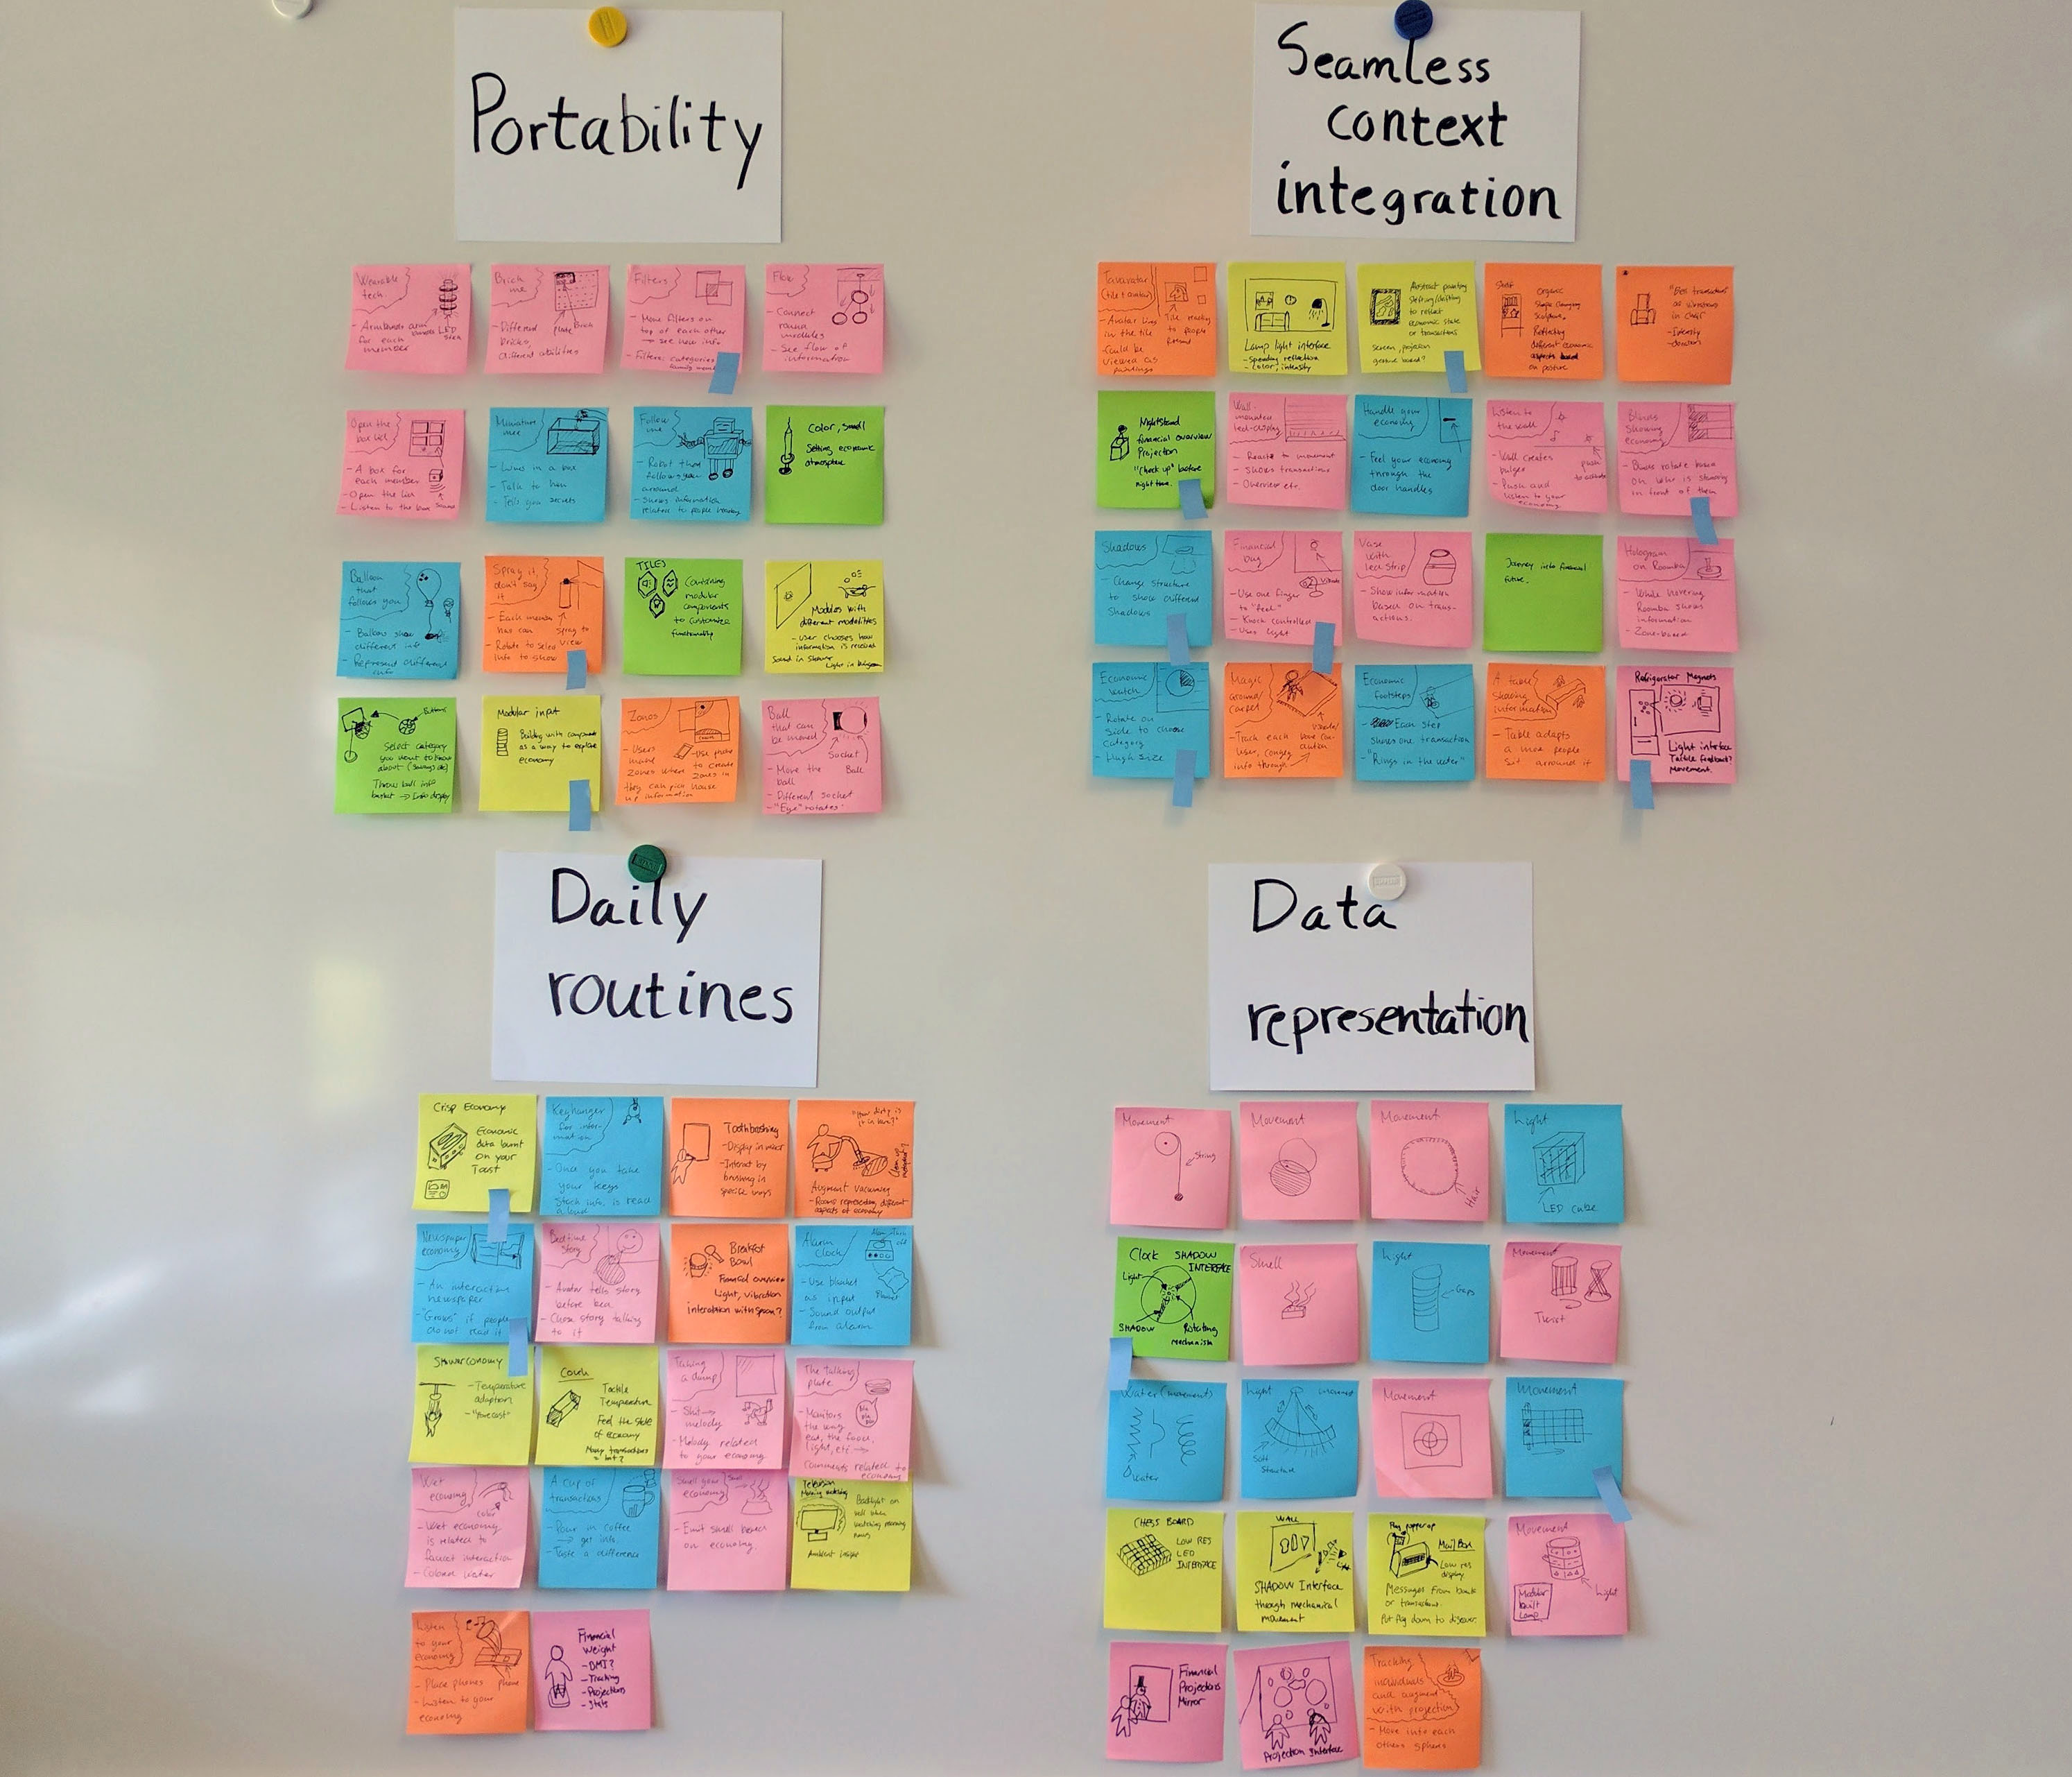 Portability
Wearable
tech
- Armbands
for each
member
LED
Brick
me
- Different
bricks,
different abilities
plate
Brick
Filters
- Move filters on
top of each other
→ see how info
- Filters: categories
Flow
- Connect
round
modules
- See flow of
information
Open the
box lid
- A box for
each member
- Open the lid
- Listen to the box
Sound
Miniature
- Lives in a box
- Talk to him
- Tells you secrets
Follow
me
- Robot that
follows you
around
- Shows information
related to people
Color, smell
Setting economic
atmosphere
Balloon
that
follows you
- Balloons show
different info
- Represent different
info
Spray it,
don't say
it
- Each member
has can
- Rotate to select
info to show
spray to
view
TILES
Combining
modular
components
to customize
functionality
Modules with
different modalities
- User chooses how
information is received
Sound in shower
Light in kitchen
Buttons
Select category
you want to know
about
Throw ball into
basket → Info display
Modular input
Building with components
as a way to explore
economy
Zones
- Users
make
zones where
they can pick
up information
- Use phone
to create
zones in
house
Ball
that can
be moved
- Move the
ball
- Different socket
- "Eye" rotates
Socket
Ball
Seamless
context
integration
(tile + avatar)
- Avatar lives
in the tile
- Could be
viewed as
paintings
Tile reacting
to people
around
Lamp light interface
- Spending reflection
- Color, intensity
Abstract painting
to reflect
economic state
or transactions
screen, projection
Shelf
Organic
shape changing
sculpture.
Reflecting
different economic
aspects based
on posture
transactions
as vibrations
in chair
- Intensity
- duration
Nightstand
financial overview
Projection
"Check up" before
night time.
Wall-
mounted
led-display
- Reacts to movement
- Shows transactions
- Overview etc.
Handle your
economy
- Feel your economy
through the
door handles
Listen to
the wall
- Wall creates
bulges
- Push and
listen to your
economy
push
to activate
Blinds
showing
economy
- Blinds rotate based
on who is standing
in front of them
Shadows
- Change structure
to show different
shadows
Financial
bug
- Use one finger
to "feel"
- Knock controlled
- Uses light
Vibrate
Vase
with
led strip
- Show information
based on trans-
actions.
Journey into financial
future.
Hologram
on Roomba
- While hovering
Roomba shows
information
- Zone-based
Economic
watch
- Rotate on
side to choose
category
- Huge size
Magic
ground/
carpet
- Track each
user, convey
info through
Economic
footsteps
- Each step
shows one transaction
- "Rings in the water"
A table
showing
information
- Table adapts
Sit around it
Refrigerator Magnets
Light interface
Tactile feedback?
Movement.
Daily
routines
Crisp Economy
Economic
data burnt
on your
Toast
Keyhanger
for infor-
mation
- Once you take
your keys
stock info. is read
aloud
Toothbrushing
- Display in mirror
- Interact by
brushing in
specific ways
"How dirty is
it in here?"
Augment vacuuming
- Rooms representing different
aspects of economy
Newspaper
economy
- An interactive
newspaper
- "Grows" if people
do not read it
Bedtime
story
- Avatar tells story
before bed
- Chose story talking
to it
Breakfast
Bowl
Financial overview
Light, vibration
interaction with spoon?
Alarm
Clock
- Use blanket
as input
- Sound output
from alarm
Showerconomy
- Temperature
adaption
- "forecast"
Couch
Tactile
Temperature
Feel the state
of economy
Many transactions
= hot?
Taking
a dump
- Shit →
melody
- Melody related
to your economy
The talking
plate
- Monitors
the way
eat, the food,
light, etc →
comments related to
economy
bla
bla
bla
Wet
economy
- Wet economy
is related to
faucet interaction
- Colour water
A cup of
transactions
- Pour in coffee
→ get info.
- Taste a difference
Smell your
economy
- Emit smell based
on economy.
Television
Morning watching
Backlight on
wall when
watching morning
news
Ambient insight
Listen
to your
economy
- Place phones
- Listen to your
economy
phone
Financial
Weight
- BMI?
- Tracking
- Projections
- Stats
Data
representation
Movement
String
Movement
Movement
Hair
Light
LED cube
Clock SHADOW
INTERFACE
Light
SHADOW
Rotating
mechanism
Smell
Light
Gaps
Movement
Twist
Water (movement)
Water
Light
movement
Soft
Structure
Movement
Movement
CHESS BOARD
LOW RES
LED
INTERFACE
WALL
SHADOW Interface
through mechanical
movement
Mail Box
Low res
display
Messages from bank
or transactions.
Put flag down to discover.
Movement
Light
Modular
built
Lamp
Financial
Projections
Mirror
Projection Interface
Tracking
individuals
and augment
with projection
- Move into each
others sphere